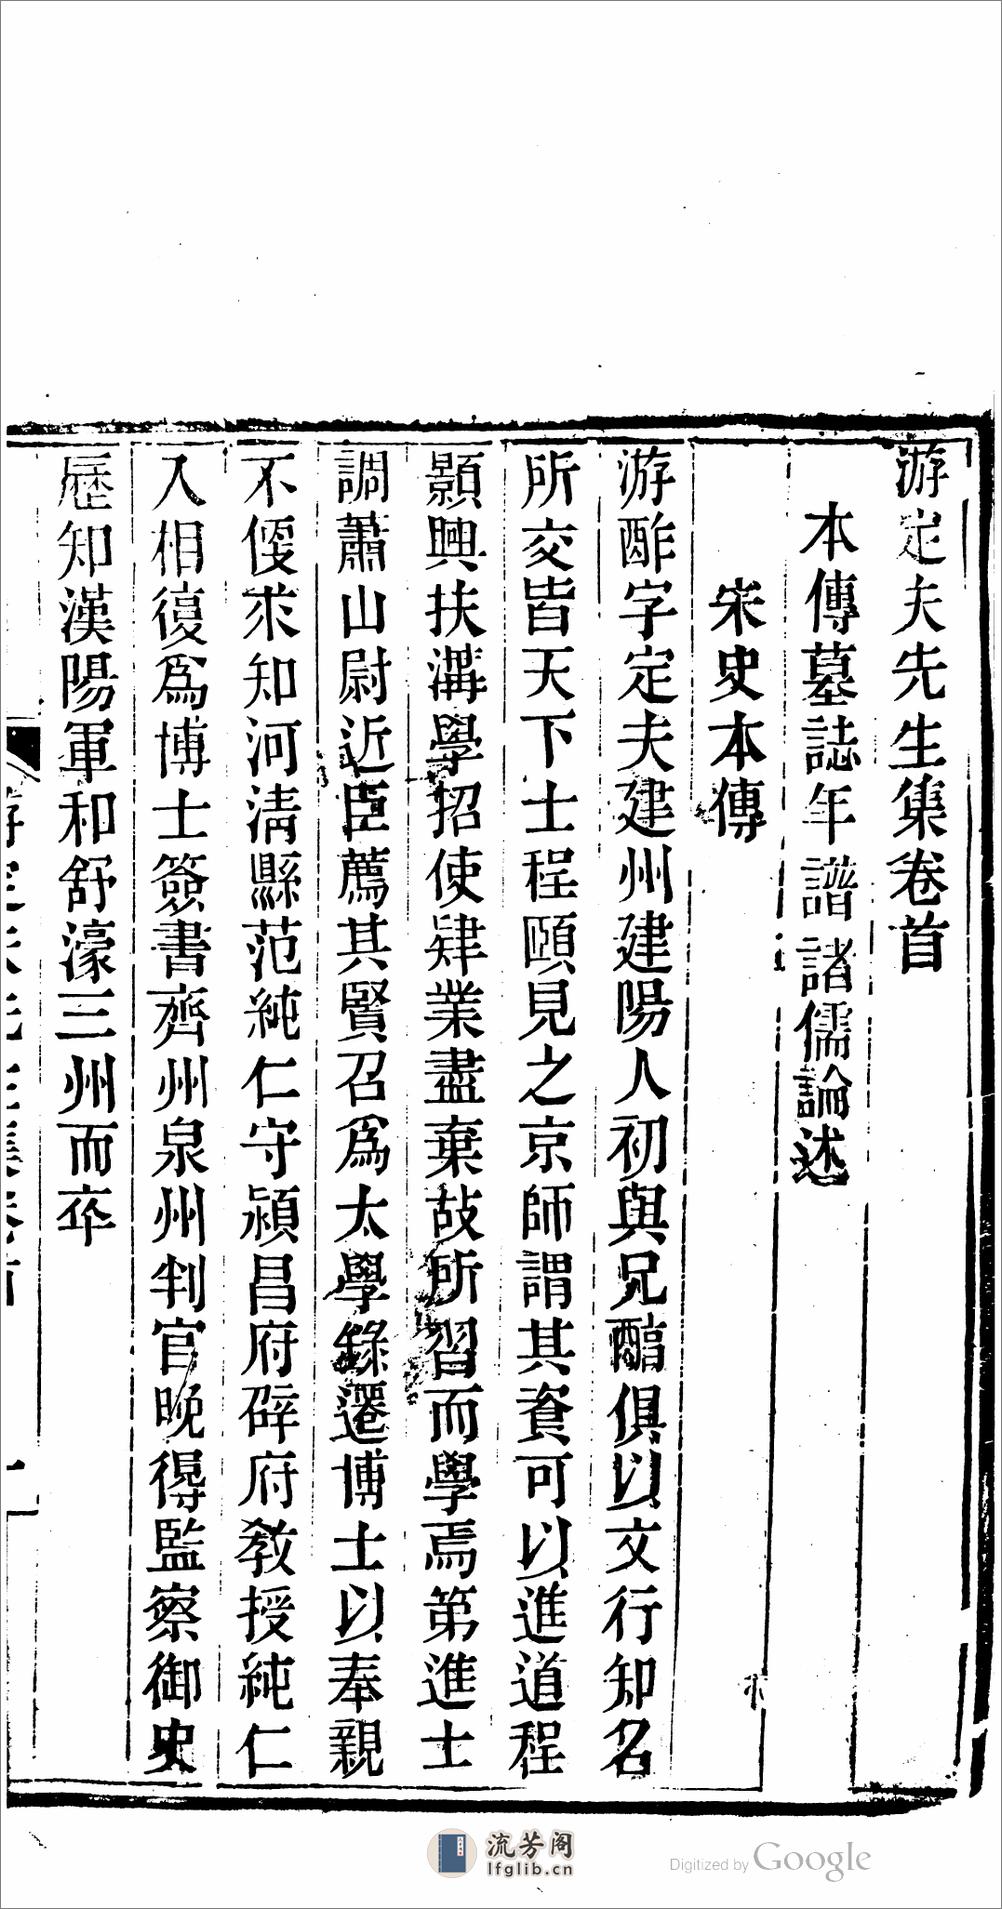 游定夫先生集卷首
本傳墓誌年譜諸儒論述
宋史本傳
游酢字定夫建州建陽人初與兄醕俱以文行知名
所交皆天下士程頤見之京師謂其資可以進道程
顥興扶溝學招使肄業盡棄故所習而學焉第進士
調蕭山尉近臣薦其賢召爲太學錄遷博士以奉親
不便求知河淸縣范純仁守潁昌府辟府敎授純仁
入相復爲博士簽書齊州泉州判官晚得監察御史
歷知漢陽軍和舒濠三州而卒
游定夫先生集卷首
一
流芳阁
lfglib.cn
Digitized by Google